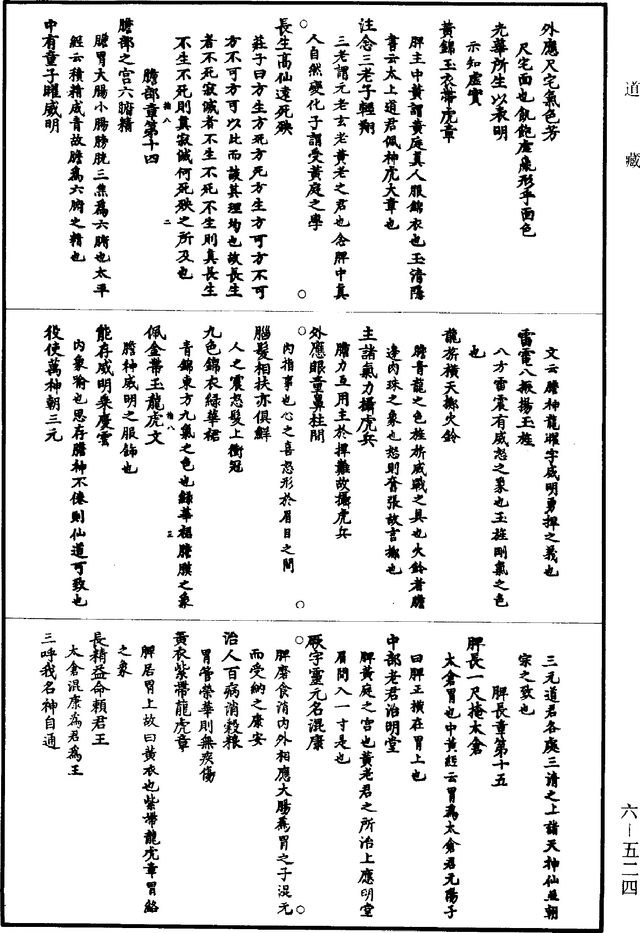 道藏
外應尺宅氣色芳
尺宅面也飢飽虛羸形乎面色
光華所生以表明
示知虛實
黃錦玉衣帶虎章
脾主中黃謂黃庭真人服錦衣也玉清隱
書云太上道君佩神虎大章也
注念三老子輕翔
三老謂元老玄老黃老之君也念脾中真
人自然變化子謂受黃庭之學
長生高仙遠死殃
莊子曰方生方死方死方生方可方不可
方不可方可以比而該其理均也故長生
者不死寂滅者不生不死不生則真長生
不生不死則真寂滅何死殃之所及也
膽部章第十四
膽部之宮六腑精
膽胃大腸小腸膀胱三焦為六腑也太平
經云積精成青故膽為六腑之精也
中有童子曜威明
文云膽神龍曜字威明勇捍之義也
雷電八振揚玉旌
八方雷震有威怒之象也玉旌剛氣之色
也
龍旂橫天擲火鈴
膽青龍之色旌旂威戰之具也火鈴者膽
邊肉珠之象也怒則奮張故言擲也
主諸氣力攝虎兵
膽力互用主於捍難故攝虎兵
外應眼童鼻柱間
內指事也心之喜怒形於眉目之間
腦髮相扶亦俱鮮
人之震怒髮上衝冠
九色錦衣綠華裙
青錦東方九氣之色也綠華裙膽膜之象
佩金帶玉龍虎文
膽神威明之服飾也
能存威明乘慶雲
內象喻也思存膽神不倦則仙道可致也
役使萬神朝三元
三元道君各處三清之上諸天神仙並朝
宗之致也
脾長章第十五
脾長一尺掩太倉
太倉胃也中黃經云胃為太倉君元陽子
曰脾正橫在胃上也
中部老君治明堂
脾黃庭之宮也黃老君之所治上應明堂
眉間入一寸是也
厥字靈元名混康
脾磨食消內外相應大腸為胃之子混元
而受納之康安
治人百病消穀糧
胃管榮華則無疾傷
黃衣紫帶龍虎章
脾居胃上故曰黃衣也紫帶龍虎章胃絡
之象
長精益命賴君王
太倉混康為君為王
三呼我名神自通
六－五二四